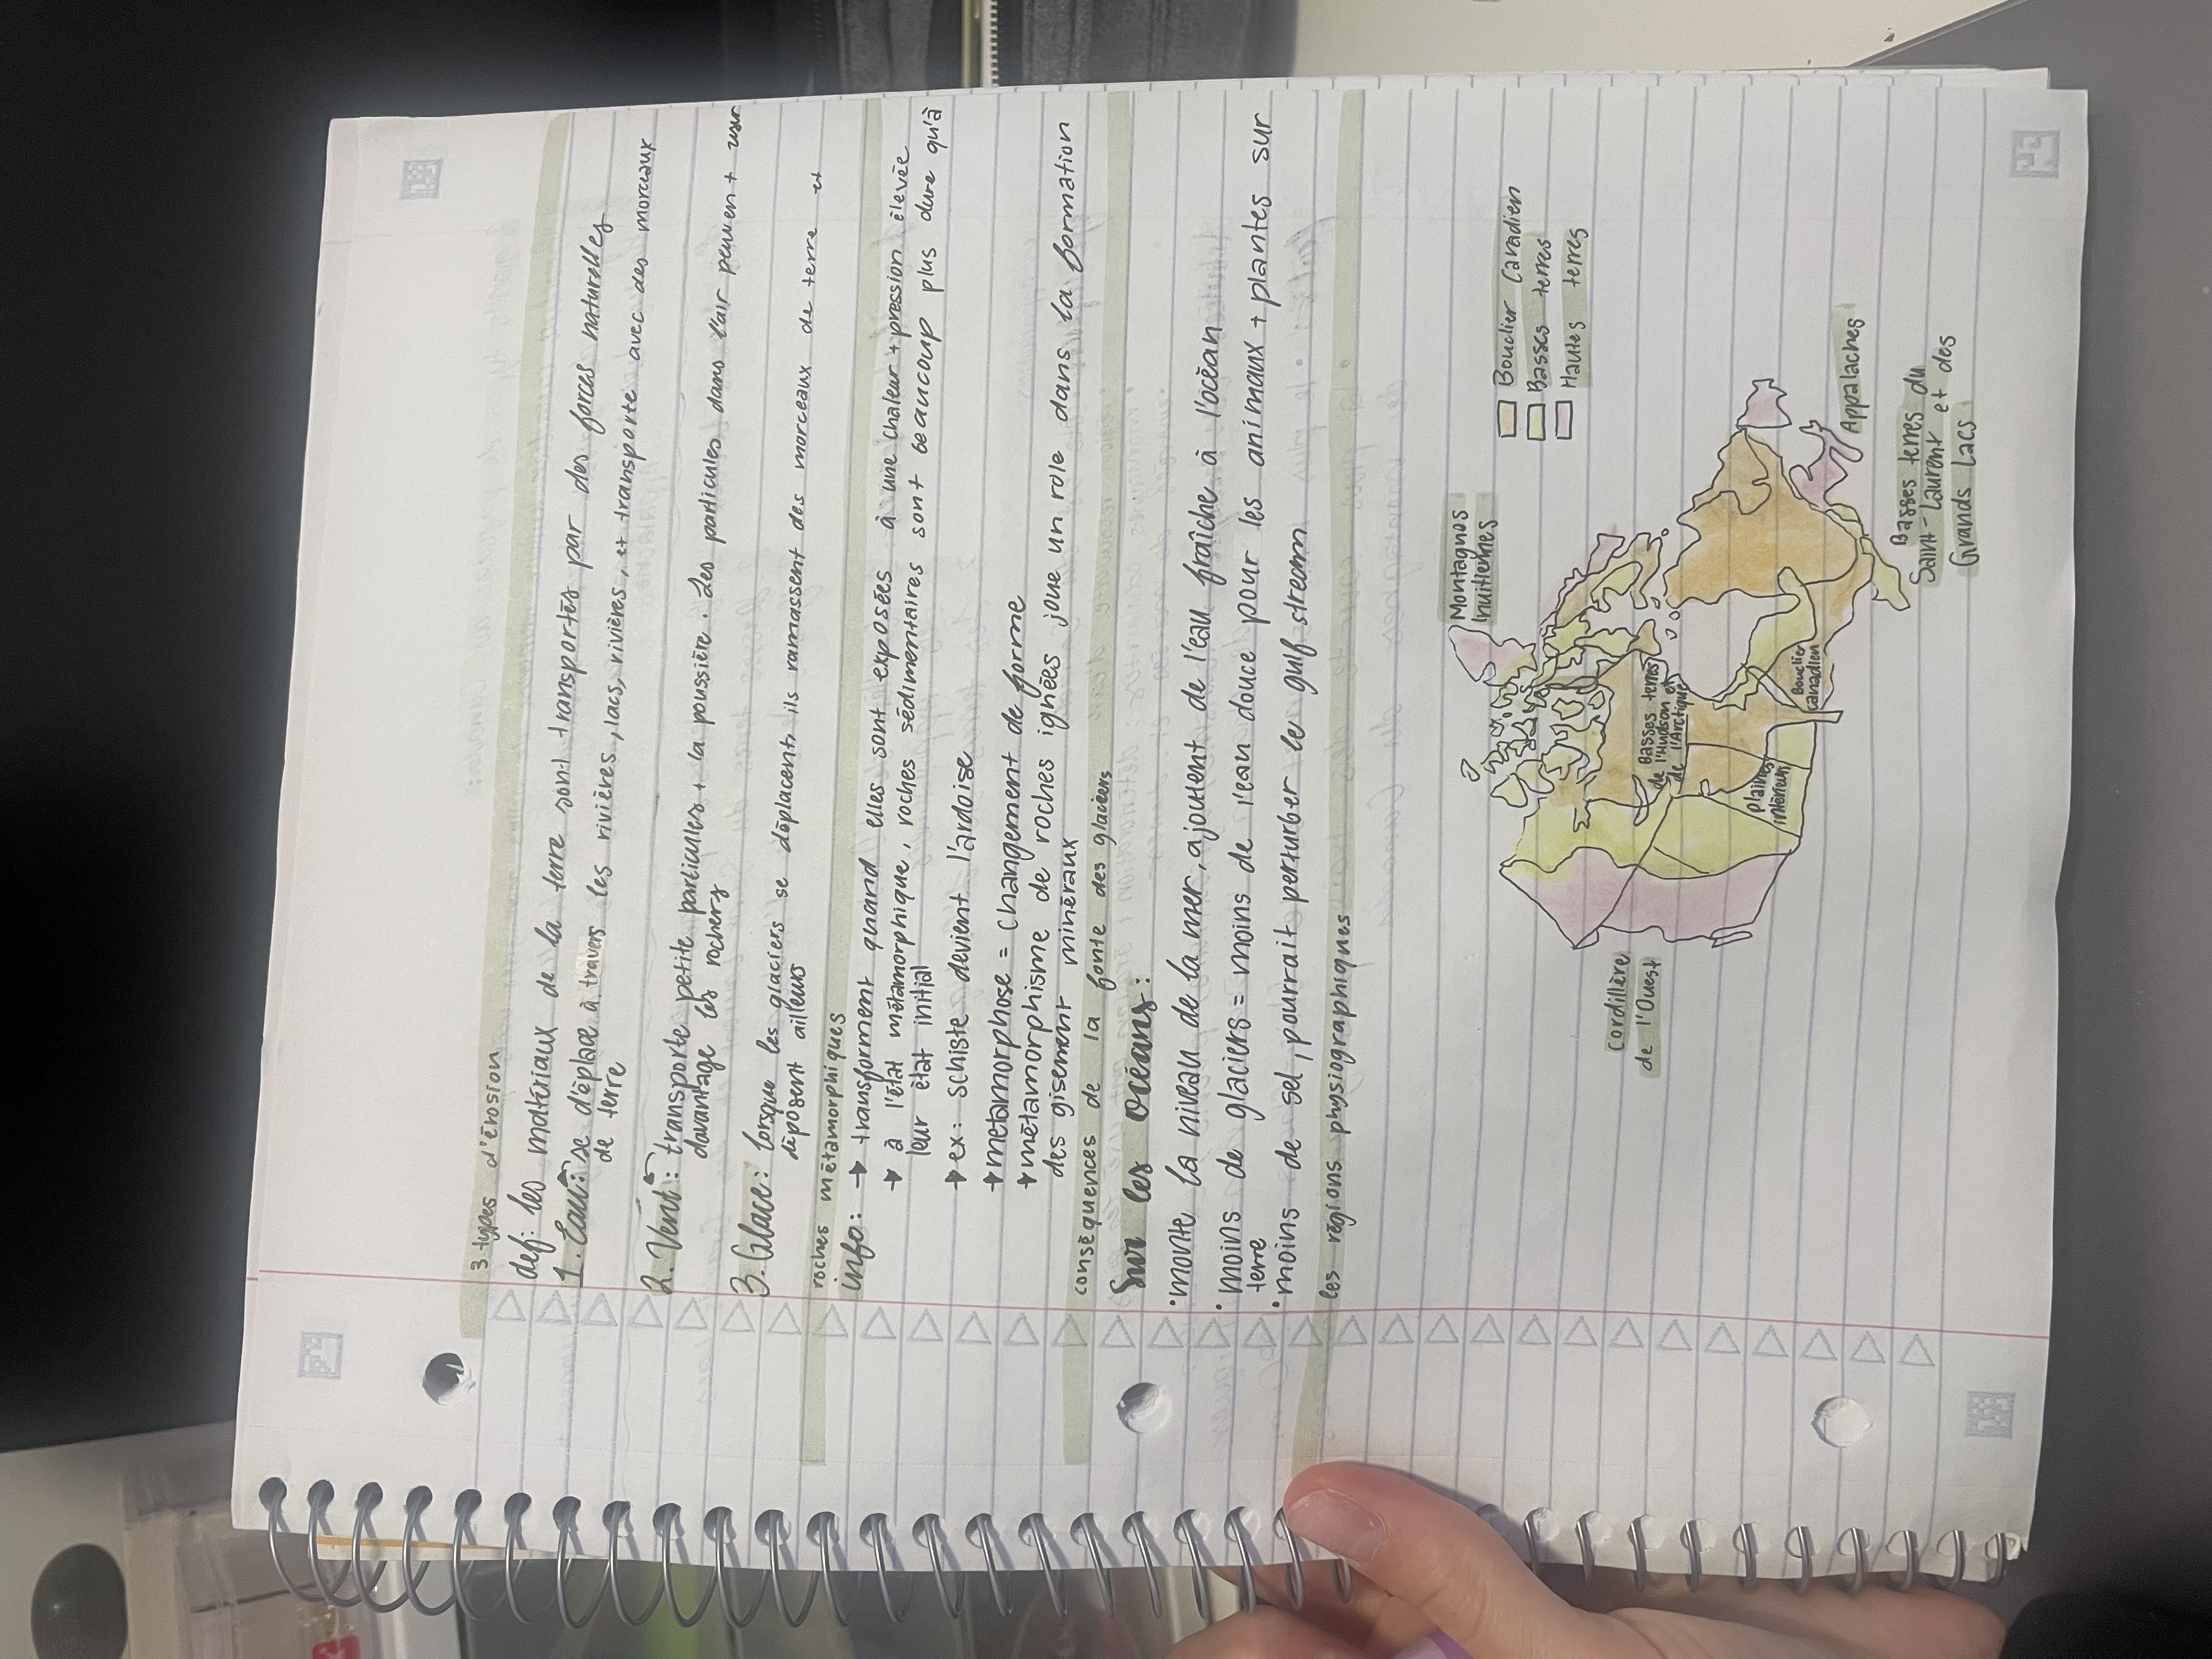 3 types d'érosion
def: les matériaux de la terre sont transportés par des forces naturelles
1. Eau: se déplace à travers les rivières, lacs, rivières, et transporte avec des morceaux
de terre
2. Vent: transporte petite particules + la poussière. Les particules dans l'air peuvent user
davantage les rochers
3. Glace: lorsque les glaciers se déplacent, ils ramassent des morceaux de terre et
déposent ailleurs
roches métamorphiques
info: → transforment quand elles sont exposées à une chaleur + pression élevée
→ à l'état métamorphique, roches sédimentaires sont beaucoup plus dure qu'à
leur état initial
→ ex: schiste devient l'ardoise
→ metamorphose = changement de forme
→ métamorphisme de roches ignées joue un role dans la formation
des gisement minéraux
conséquences de la fonte des glaciers
Sur les océans:
• monte la niveau de la mer, ajoutent de l'eau fraîche à l'océan
• moins de glaciers = moins de l'eau douce pour les animaux + plantes sur
terre
• moins de sel, pourrait perturber le gulf stream
les régions physiographiques
Montagnes
Inuitiennes
Bouclier Canadien
Basses terres
Hautes terres
Cordillère
de l'Ouest
Basses terres
de l'Hudson et
de l'Arctique
plaines
intérieurs
Bouclier
canadien
Appalaches
Basses terres du
Saint-Laurent et des
Grands Lacs